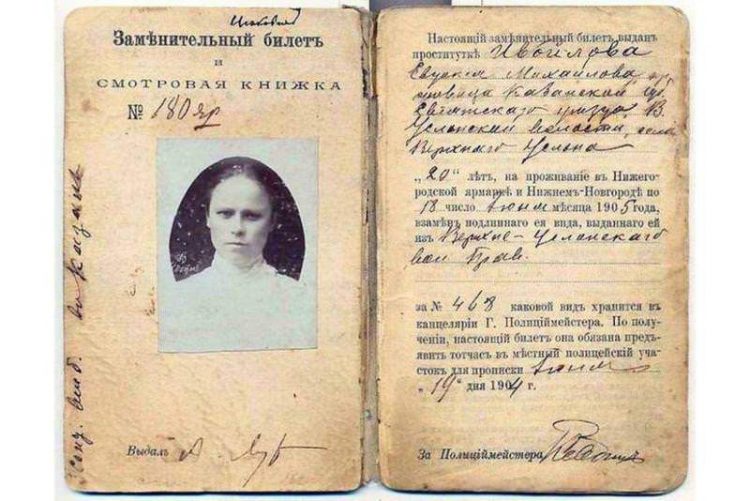 Замѣнительный билетъ
и
СМОТРОВАЯ КНИЖКА
№ 180 яр
Выдалъ
Настоящій замѣнительный билетъ выданъ
проституткѣ Ивойлова
Евдокія Михайлова
Казанской губ.
уѣзда, В.
Услонской волости, села
Верхняго Услона
„20“ лѣтъ, на проживаніе въ Нижего-
родской ярмаркѣ и Нижнемъ-Новгородѣ по
18 число Іюня мѣсяца 1905 года,
взамѣнъ подлиннаго ея вида, выданнаго ей
изъ Верхне-Услонскаго
вол Прав.
за № 468 каковой видъ хранится въ
канцеляріи Г. Полиціймейстера. По полу-
ченіи, настоящій билетъ она обязана предъ-
явить тотчасъ въ мѣстный полицейскій уча-
стокъ для прописки Іюня
„19“ дня 1904 г.
За Полиціймейстера